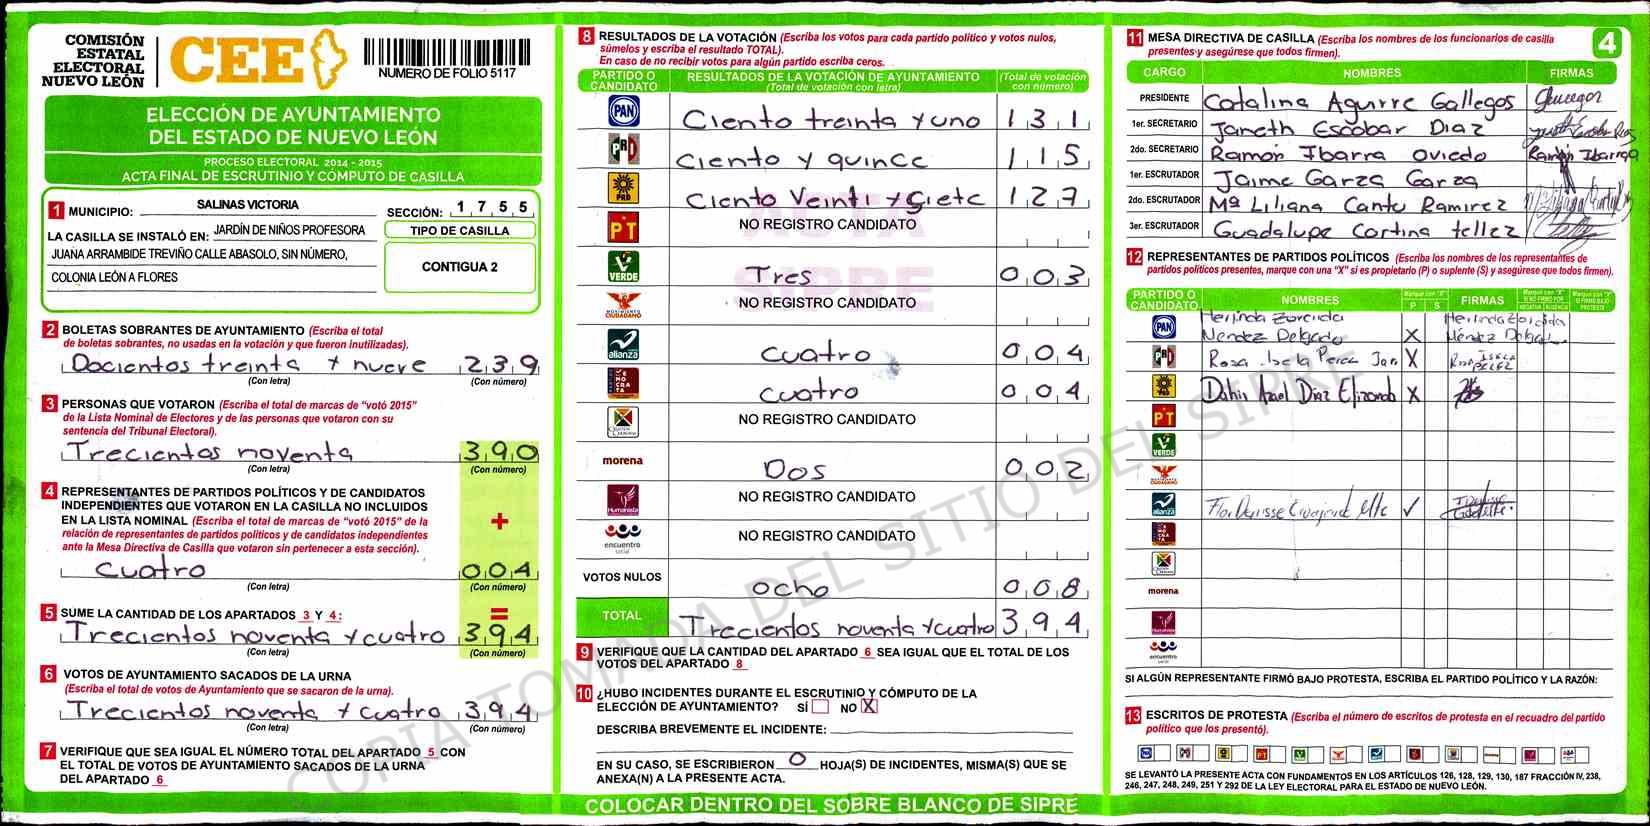 COMISIÓN
ESTATAL
ELECTORAL
NUEVO LEÓN
CEE
NUMERO DE FOLIO 5117
ELECCIÓN DE AYUNTAMIENTO
DEL ESTADO DE NUEVO LEÓN
PROCESO ELECTORAL 2014 - 2015
ACTA FINAL DE ESCRUTINIO Y CÓMPUTO DE CASILLA
1 MUNICIPIO: SALINAS VICTORIA
SECCIÓN: 1 7 5 5
LA CASILLA SE INSTALÓ EN: JARDÍN DE NIÑOS PROFESORA
JUANA ARRAMBIDE TREVIÑO CALLE ABASOLO, SIN NÚMERO,
COLONIA LEÓN A FLORES
TIPO DE CASILLA
CONTIGUA 2
2 BOLETAS SOBRANTES DE AYUNTAMIENTO (Escriba el total
de boletas sobrantes, no usadas en la votación y que fueron inutilizadas).
Docientos treinta y nueve 2 3 9
(Con letra) (Con número)
3 PERSONAS QUE VOTARON (Escriba el total de marcas de "votó 2015"
de la Lista Nominal de Electores y de las personas que votaron con su
sentencia del Tribunal Electoral).
Trecientos noventa 3 9 0
(Con letra) (Con número)
4 REPRESENTANTES DE PARTIDOS POLÍTICOS Y DE CANDIDATOS
INDEPENDIENTES QUE VOTARON EN LA CASILLA NO INCLUIDOS
EN LA LISTA NOMINAL (Escriba el total de marcas de "votó 2015" de la
relación de representantes de partidos políticos y de candidatos independientes
ante la Mesa Directiva de Casilla que votaron sin pertenecer a esta sección).
+
cuatro 0 0 4
(Con letra) (Con número)
=
5 SUME LA CANTIDAD DE LOS APARTADOS 3 Y 4:
Trecientos noventa y cuatro 3 9 4
(Con letra) (Con número)
6 VOTOS DE AYUNTAMIENTO SACADOS DE LA URNA
(Escriba el total de votos de Ayuntamiento que se sacaron de la urna).
Trecientos noventa y cuatro 3 9 4
(Con letra) (Con número)
7 VERIFIQUE QUE SEA IGUAL EL NÚMERO TOTAL DEL APARTADO 5 CON
EL TOTAL DE VOTOS DE AYUNTAMIENTO SACADOS DE LA URNA
DEL APARTADO 6
8 RESULTADOS DE LA VOTACIÓN (Escriba los votos para cada partido político y votos nulos,
súmelos y escriba el resultado TOTAL).
En caso de no recibir votos para algún partido escriba ceros.
PARTIDO O CANDIDATO
RESULTADOS DE LA VOTACIÓN DE AYUNTAMIENTO
(Total de votación con letra)
(Total de votación con número)
PAN Ciento treinta y uno 1 3 1
PRD Ciento y quince 1 1 5
PRD Ciento Veinti y Siete 1 2 7
PT NO REGISTRO CANDIDATO
VERDE Tres 0 0 3
MOVIMIENTO CIUDADANO NO REGISTRO CANDIDATO
alianza cuatro 0 0 4
DEMOCRATA cuatro 0 0 4
NO REGISTRO CANDIDATO
morena Dos 0 0 2
Humanista NO REGISTRO CANDIDATO
encuentro social NO REGISTRO CANDIDATO
VOTOS NULOS ocho 0 0 8
TOTAL Trecientos noventa y cuatro 3 9 4
ACTA
SIPRE
9 VERIFIQUE QUE LA CANTIDAD DEL APARTADO 6 SEA IGUAL QUE EL TOTAL DE LOS
VOTOS DEL APARTADO 8
10 ¿HUBO INCIDENTES DURANTE EL ESCRUTINIO Y CÓMPUTO DE LA
ELECCIÓN DE AYUNTAMIENTO? SÍ NO X
DESCRIBA BREVEMENTE EL INCIDENTE:
EN SU CASO, SE ESCRIBIERON 0 HOJA(S) DE INCIDENTES, MISMA(S) QUE SE
ANEXA(N) A LA PRESENTE ACTA.
COLOCAR DENTRO DEL SOBRE BLANCO DE SIPRE
11 MESA DIRECTIVA DE CASILLA (Escriba los nombres de los funcionarios de casilla
presentes y asegúrese que todos firmen).
4
CARGO NOMBRES FIRMAS
PRESIDENTE Catalina Aguirre Gallegos
1er. SECRETARIO Janeth Escobar Diaz
2do. SECRETARIO Ramón Ibarra Oviedo Ramón Ibarra
1er. ESCRUTADOR Jaime Garza Garza
2do. ESCRUTADOR Mª Liliana Cantu Ramirez
3er. ESCRUTADOR Guadalupe Cortina tellez
12 REPRESENTANTES DE PARTIDOS POLÍTICOS (Escriba los nombres de los representantes de
partidos políticos presentes, marque con una "X" si es propietario (P) o suplente (S) y asegúrese que todos firmen).
PARTIDO O CANDIDATO
NOMBRES
Marque con "X"
P S
FIRMAS
PAN Herlinda Zoreida
Mendez Delgado X Méndez Delgad
Rosa Isela Perez Jan X
PRD Dahis Azael Diaz Elizondo X
PT
VERDE
MOVIMIENTO CIUDADANO
alianza ✓
morena
Humanista
encuentro social
SI ALGÚN REPRESENTANTE FIRMÓ BAJO PROTESTA, ESCRIBA EL PARTIDO POLÍTICO Y LA RAZÓN:
13 ESCRITOS DE PROTESTA (Escriba el número de escritos de protesta en el recuadro del partido
político que los presentó).
SE LEVANTÓ LA PRESENTE ACTA CON FUNDAMENTOS EN LOS ARTÍCULOS 126, 128, 129, 130, 187 FRACCIÓN IV, 238,
246, 247, 248, 249, 251 Y 292 DE LA LEY ELECTORAL PARA EL ESTADO DE NUEVO LEÓN.
COPIA TOMADA DEL SITIO DEL SIPRE